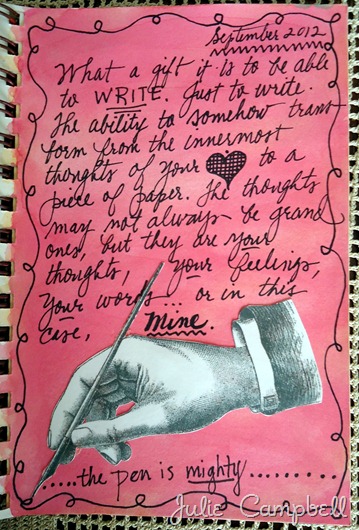 September 2012
What a gift it is to be able
to WRITE. Just to write.
The ability to somehow trans
form from the innermost
thoughts of your to a
piece of paper. The thoughts
may not always be grand
ones, but they are your
thoughts, your feelings,
your words... or in this
case, Mine.
.....the pen is mighty.........
Julie Campbell